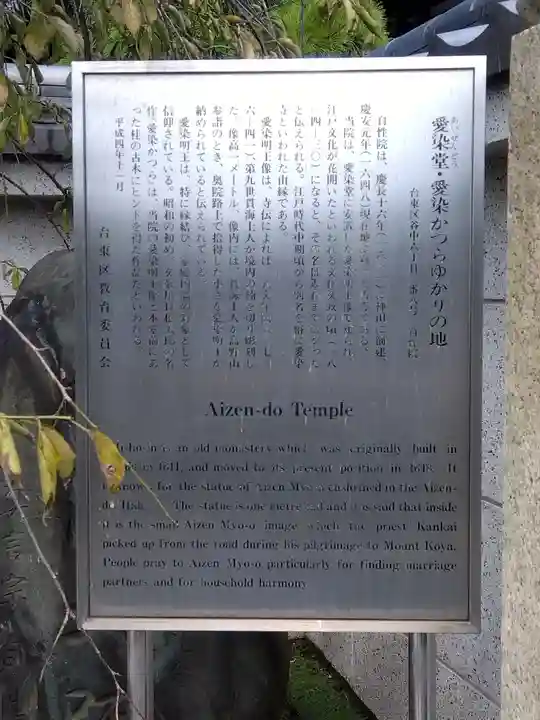 愛染堂・愛染かつらゆかりの地
あいぜんどう
台東区谷中六丁目
自性院は、慶長十六年
慶安元年(一六四八)現在地
当院は、愛染堂に安置した愛染明王像で知られ、
江戸文化が花開いたといわれる文化文政の頃(一八
四-三〇)になると、その名は
と伝えられる。江戸時代中期頃から別名を俗に愛染
寺といわれた由縁である。
愛染明王像は、寺伝によれば
六-四一)第九世貫海上人が境内の楠を切り彫刻し
た。像高一メートル、像内には、貫海上人が高野山
参詣のとき、奥院路上で拾得した小さな愛染明王が
納められていると伝えられている。
愛染明王は、特に縁結び、家庭円満の対象として
信仰されている。昭和の初め、文豪川口松太郎の名
作「愛染かつら」は、当院の愛染明王像と本堂前にあ
った桂の古木にヒントを得た作品だといわれる。
平成四年十一月
台東区教育委員会
Aizen-do Temple
is an old monastery which was originally built in
1611, and moved to its present position in 1648. It
is known for the statue of Aizen Myo-o enshrined in the Aizen-
do Hall. The statue is one metre tall and it is said that inside
it is the small Aizen Myo-o image which the priest Kankai
picked up from the road during his pilgrimage to Mount Koya.
People pray to Aizen Myo-o particularly for finding marriage
partners and for household harmony